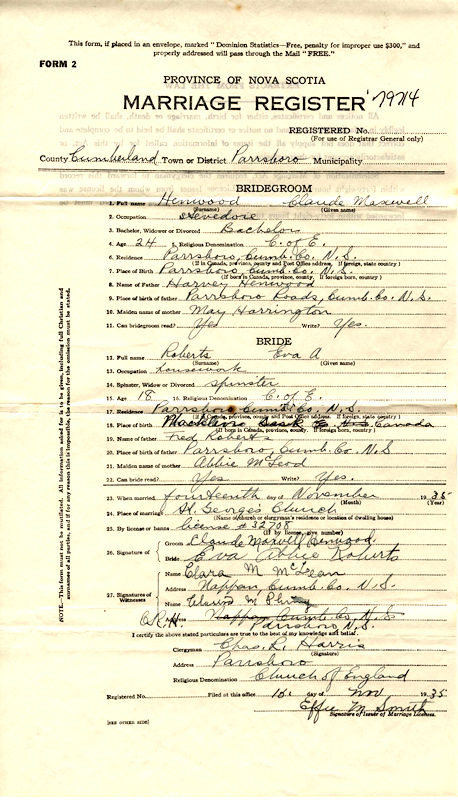 This form, if placed in an envelope, marked "Dominion Statistics—Free, penalty for improper use $300," and
properly addressed will pass through the Mail "FREE."
FORM 2
PROVINCE OF NOVA SCOTIA
MARRIAGE REGISTER 7974
REGISTERED No.
(For use of Registrar General only)
County Cumberland Town or District Parrsboro Municipality
BRIDEGROOM
1. Full name Henwood Claude Maxwell
(Surname) (Given name)
2. Occupation Stevedore
3. Bachelor, Widower or Divorced Bachelor
4. Age 24 5. Religious Denomination C. of E.
6. Residence Parrsboro, Cumb. Co. N. S.
(If in Canada, province, county and Post Office address. If foreign, state country)
7. Place of Birth Parrsboro, Cumb. Co. N. S.
(If born in Canada, province, county. If foreign born, country)
8. Name of Father Harvey Henwood
9. Place of birth of father Parrsboro Roads, Cumb. Co. N. S.
10. Maiden name of mother May Harrington
11. Can bridegroom read? Yes Write? Yes.
BRIDE
12. Full name Roberts Eva A
(Surname) (Given name)
13. Occupation Housework
14. Spinster, Widow or Divorced spinster
15. Age 18 16. Religious Denomination C. of E.
17. Residence Parrsboro Cumb. Co. N. S.
(If in Canada, province, county and Post Office address. If foreign, state country)
18. Place of birth Canada
(If born in Canada, province, county. If foreign born, country)
19. Name of father Fred Roberts
20. Place of birth of father Parrsboro, Cumb. Co. N. S
21. Maiden name of mother Abbie McLeod
22. Can bride read? Yes Write? Yes.
23. When married, fourteenth day of November 1935
(Month) (Year)
24. Place of marriage St. George's Church
(Name of church or clergyman's residence or location of dwelling house)
25. By license or banns license # 32708
(If by license, give number)
26. Signature of Groom Claude Maxwell Henwood
Bride Eva Abbie Roberts
Name Clara M McLean
Address Nappan, Cumb. Co. N. S.
27. Signatures of Witnesses
Name M
C.R.H. Address Nappan Cumb. Co. N. S.
Parrsboro N. S.
I certify the above stated particulars are true to the best of my knowledge and belief.
Clergyman Chas. R. Harris
(Signature)
Address Parrsboro
Religious Denomination Church of England
Registered No. Filed at this office 15. day of Nov 1935
Effie M Smith
Signature of Issuer of Marriage Licenses.
[SEE OTHER SIDE]
NOTE—This form must not be mutilated. All information asked for is to be given, including full Christian and
surnames of all parties, and if for any reason this is impossible, the reason for the omission must be stated.